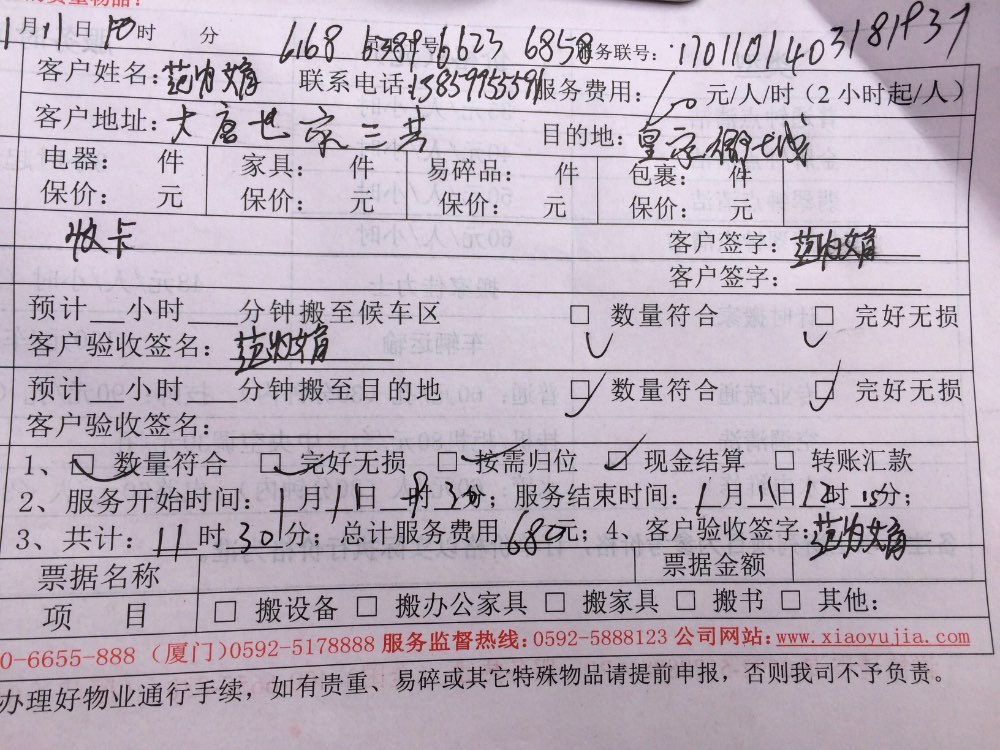 的贵重物品!
1月11日10时 分 6168 6389号6623 6858 服务联号:1701101403181937
客户姓名: 联系电话:13859955591 服务费用: 元/人/时(2小时起/人)
客户地址:大唐世家三共 目的地:皇家
电器: 件 家具: 件 易碎品: 件 包裹: 件
保价: 元 保价: 元 保价: 元 保价: 元
收卡 客户签字:
客户签字:
预计 小时 分钟搬至候车区 □ 数量符合 □ 完好无损
客户验收签名:
预计 小时 分钟搬至目的地 □ 数量符合 □ 完好无损
客户验收签名:
1、□ 数量符合 □ 完好无损 □ 按需归位 □ 现金结算 □ 转账汇款
2、服务开始时间:1月11日 时 分;服务结束时间:1月11日12时15分;
3、共计:11时30分;总计服务费用680元;4、客户验收签字:
票据名称 票据金额
项 目 □ 搬设备 □ 搬办公家具 □ 搬家具 □ 搬书 □ 其他:
0-6655-888(厦门)0592-5178888 服务监督热线:0592-5888123 公司网站:www.xiaoyujia.com
办理好物业通行手续,如有贵重、易碎或其它特殊物品请提前申报,否则我司不予负责。